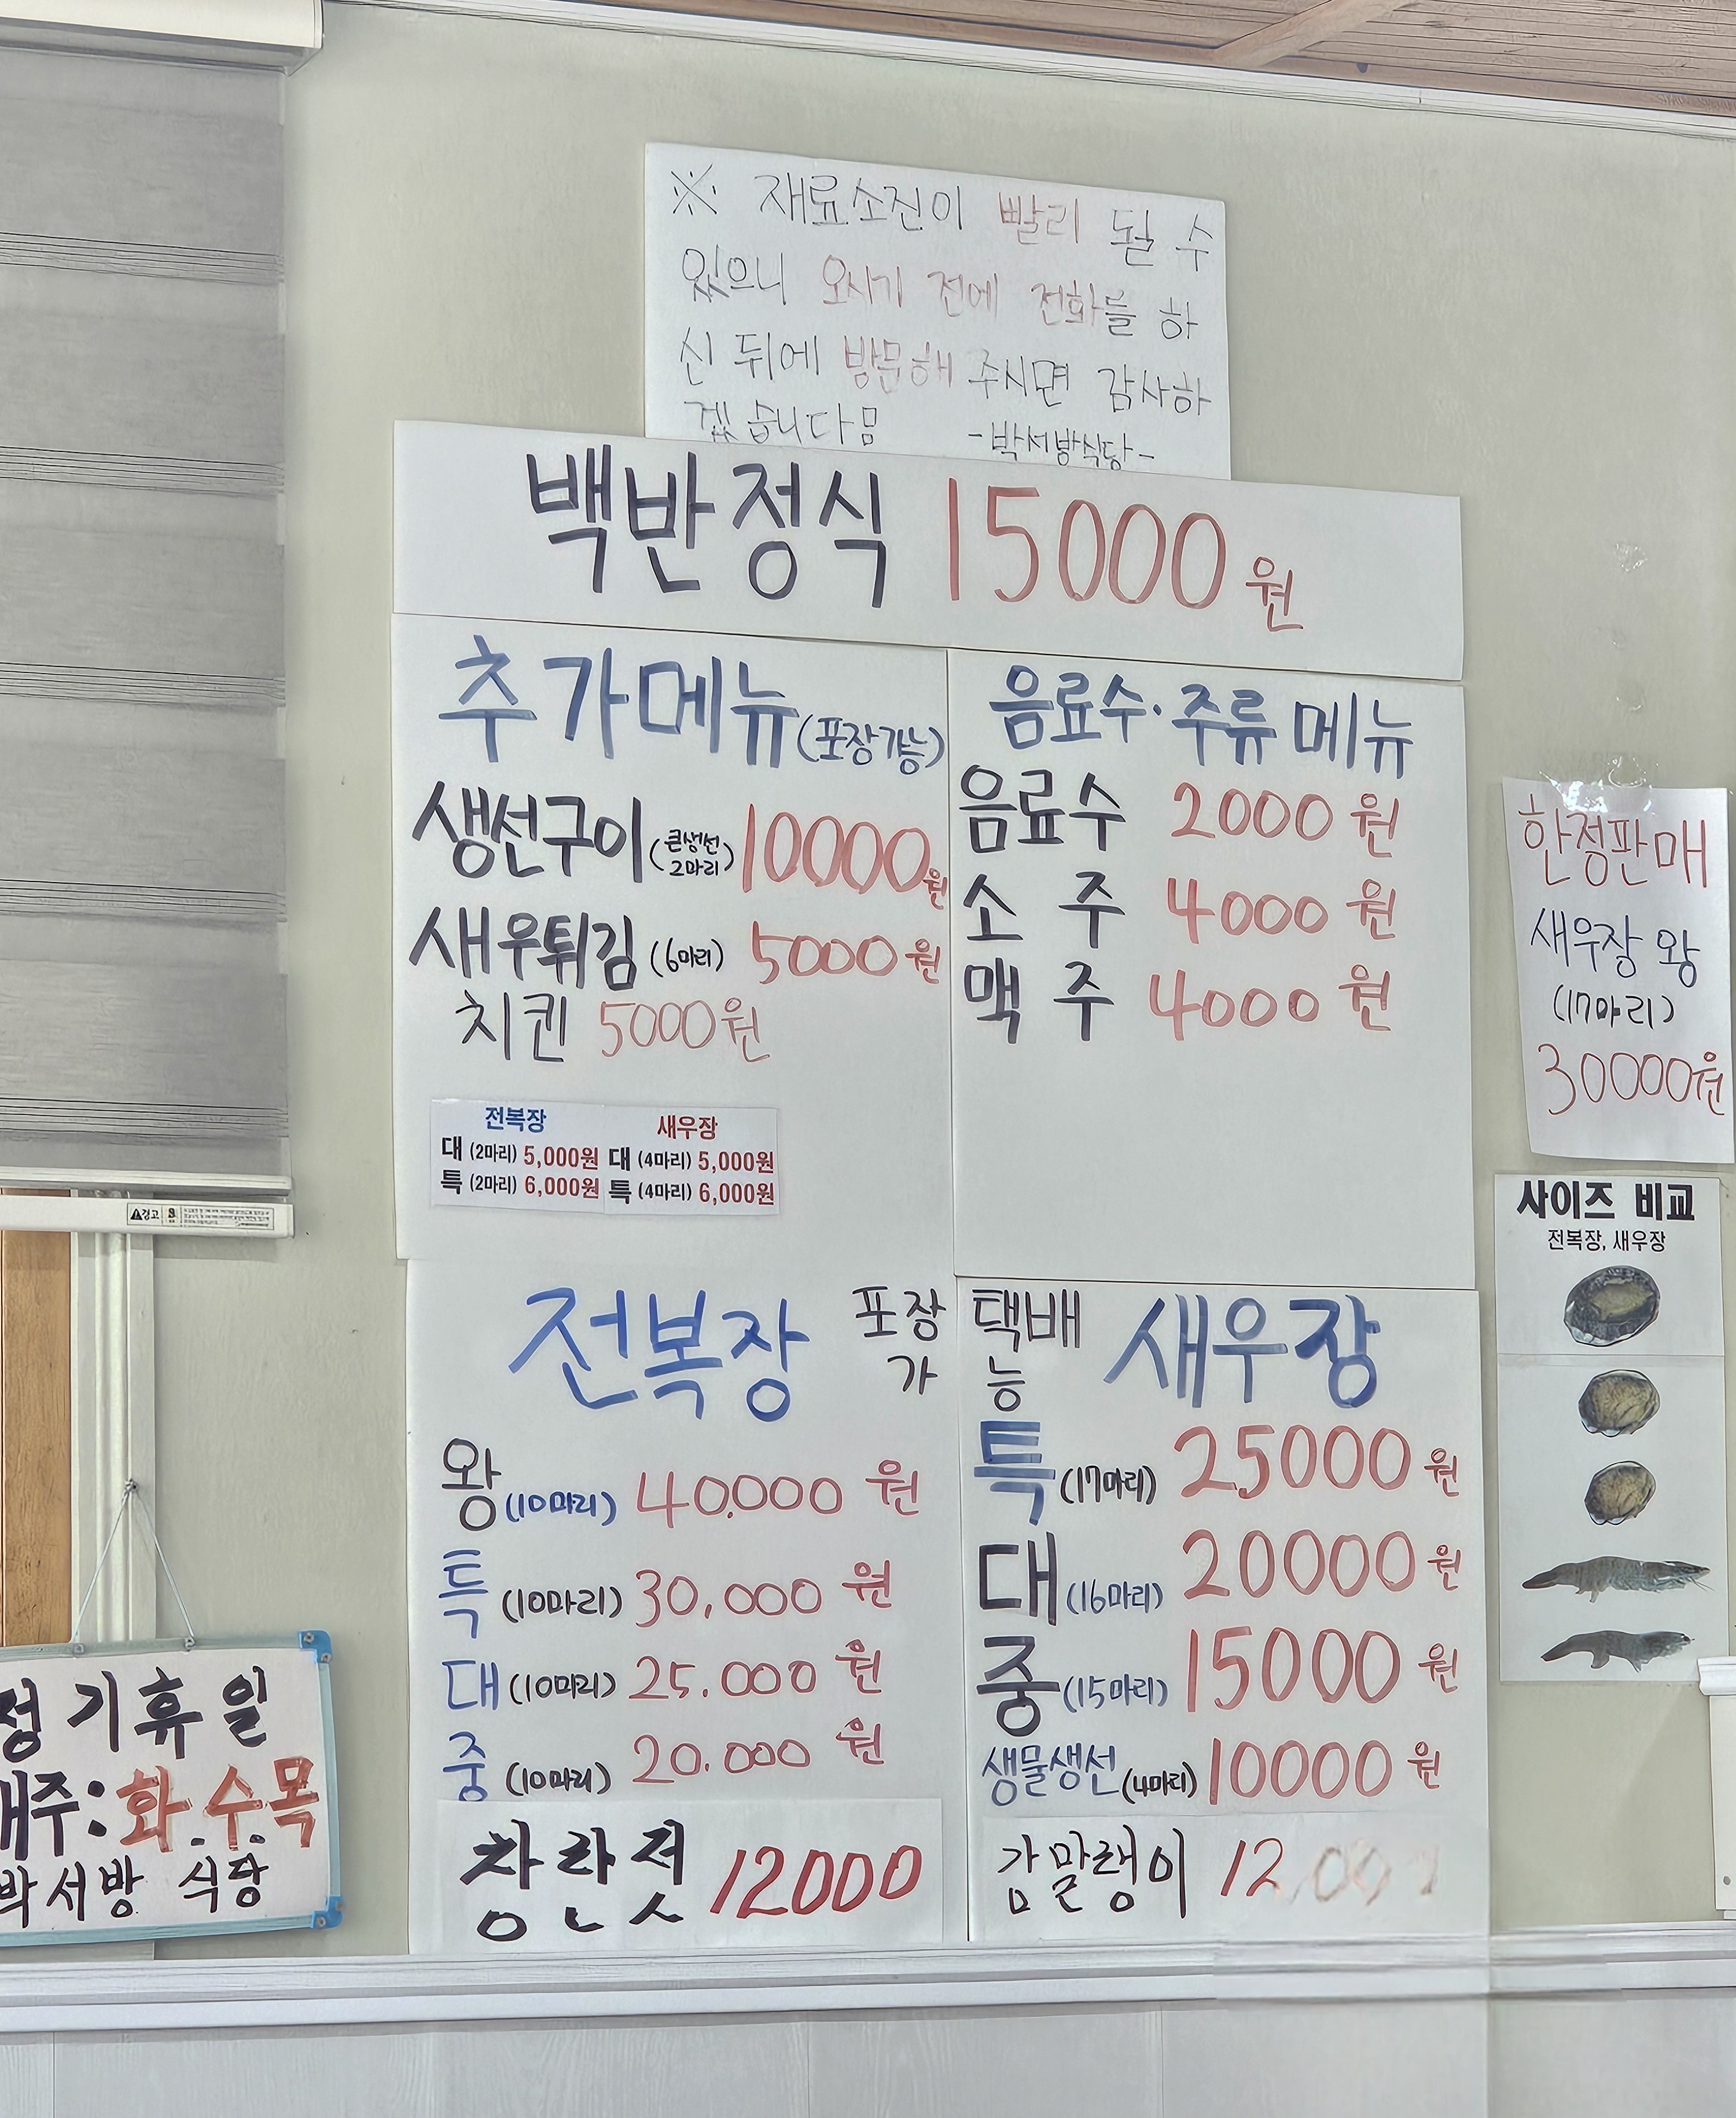 ※ 재료소진이 빨리 될 수
있으니 오시기 전에 전화를 하
신 뒤에 방문해 주시면 감사하
겠습니다
-박서방식당-
백반정식 15000원
추가메뉴(포장가능)
생선구이(큰생선 2마리) 10000원
새우튀김(6마리) 5000원
치킨 5000원
전복장
대 (2마리) 5,000원
특 (2마리) 6,000원
새우장
대 (4마리) 5,000원
특 (4마리) 6,000원
음료수·주류 메뉴
음료수 2000원
소주 4000원
맥주 4000원
한정판매
새우장 왕
(17마리)
30000원
사이즈 비교
전복장, 새우장
포장 택배
가능
전복장
왕(10마리) 40,000원
특(10마리) 30,000원
대(10마리) 25.000원
중(10마리) 20.000원
창란젓 12000
새우장
특(17마리) 25000원
대(16마리) 20000원
중(15마리) 15000원
생물생선(4마리) 10000원
감말랭이 12
경고
기휴일
주: 화.수.목
서방 식당